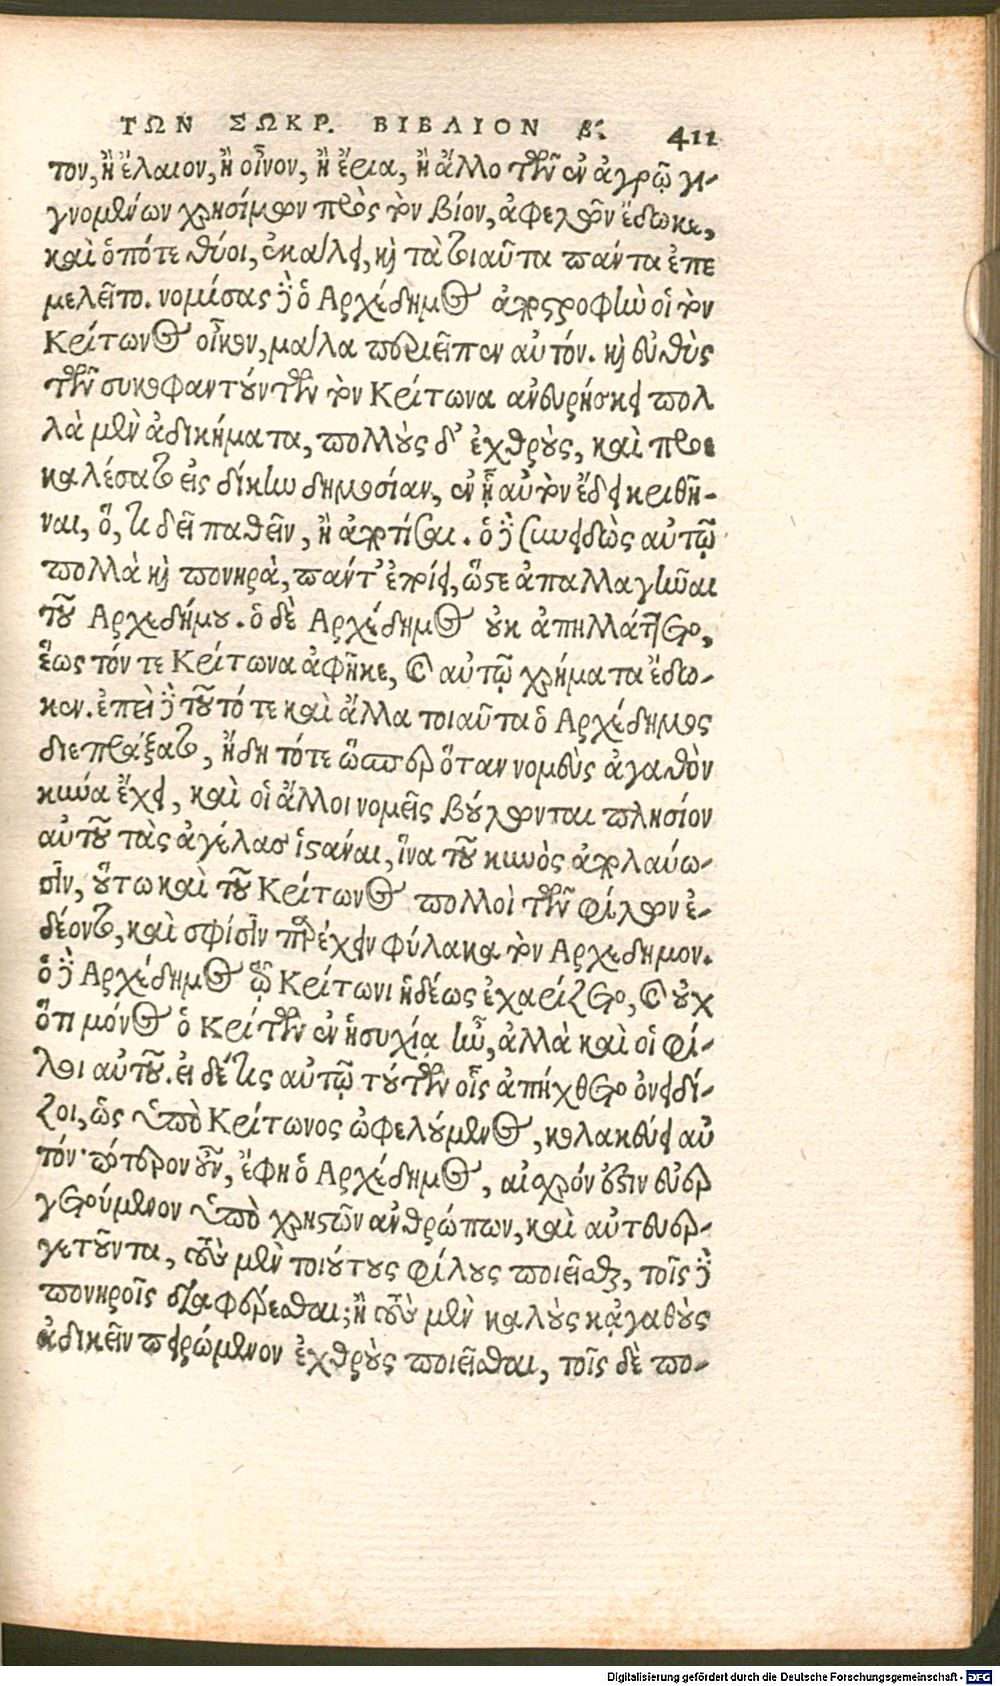 ΤΩΝ ΣΩΚΡ. ΒΙΒΛΙΟΝ β'. 411
τον, ἢ ἔλαιον, ἢ οἶνον, ἢ ἔρια, ἢ ἄλλο τῶν ἐν ἀγρῷ γι-
γνομένων χρήσιμον πρὸς τὸν βίον, ἀφελὼν ἔδωκε,
καὶ ὁπότε θύοι, ἐκάλει, καὶ τὰ τοιαῦτα πάντα ἐπε
μελεῖτο. νομίσας δὲ ὁ Αρχέδημος ἀποστροφὴν οἱ τὸν
Κρίτωνος οἶκον, μάλα περιεῖπεν αὐτόν. καὶ εὐθὺς
τῶν συκοφαντούντων τὸν Κρίτωνα ἀνευρήκει πολ
λὰ μὲν ἀδικήματα, πολλοὺς δ' ἐχθροὺς, καὶ προε
καλέσατο εἰς δίκην δημοσίαν, ἐν ᾗ αὐτὸν ἔδει κριθῆ-
ναι, ὅ,τι δεῖ παθεῖν, ἢ ἀποτίσαι. ὁ δὲ συνειδὼς αὑτῷ
πολλὰ καὶ πονηρὰ, πάντ' ἐποίει, ὥστε ἀπαλλαγῆναι
τοῦ Αρχεδήμου. ὁ δὲ Αρχέδημος οὐκ ἀπηλλάττετο,
ἕως τόν τε Κρίτωνα ἀφῆκε, καὶ αὐτῷ χρήματα ἔδω-
κεν. ἐπεὶ δὲ τοῦτό τε καὶ ἄλλα τοιαῦτα ὁ Αρχέδημος
διεπράξατο, ἤδη τότε ὥσπερ ὅταν νομεὺς ἀγαθὸν
κύνα ἔχει, καὶ οἱ ἄλλοι νομεῖς βούλονται πλησίον
αὐτοῦ τὰς ἀγέλας ἱστάναι, ἵνα τοῦ κυνὸς ἀπολαύω-
σιν, οὕτω καὶ τοῦ Κρίτωνος πολλοὶ τῶν φίλων ἐ-
δέοντο, καὶ σφίσιν παρέχειν φύλακα τὸν Αρχεδημον.
ὁ δὲ Αρχέδημος τῷ Κρίτωνι ἡδέως ἐχαρίζετο, καὶ οὐχ
ὅτι μόνος ὁ Κρίτων ἐν ἡσυχίᾳ ἦν, ἀλλὰ καὶ οἱ φί-
λοι αὐτοῦ. εἰ δέ τις αὐτῷ τούτων οἷς ἀπήχθετο ὀνειδί-
ζοι, ὡς ὑπὸ Κρίτωνος ὠφελούμενος, κολακεύει αὐ
τόν· πότερον οὖν, ἔφη ὁ Αρχέδημος, αἰσχρόν ἐστιν εὐερ
γετούμενον ὑπὸ χρηστῶν ἀνθρώπων, καὶ αὐτευερ-
γετοῦντα, τοὺς μὲν τοιούτους φίλους ποιεῖσθαι, τοῖς δὲ
πονηροῖς διαφέρεσθαι; ἢ τοὺς μὲν καλοὺς κἀγαθοὺς
ἀδικεῖν πειρώμενον ἐχθροὺς ποιεῖσθαι, τοῖς δὲ πο-
Digitalisierung gefördert durch die Deutsche Forschungsgemeinschaft - DFG